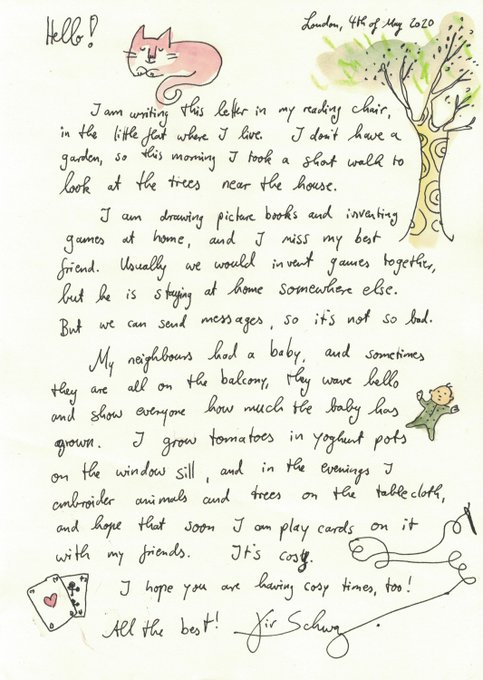 Hello!
London, 4th of May 2020
I am writing this letter in my reading chair,
in the little flat where I live. I don't have a
garden, so this morning I took a short walk to
look at the trees near the house.
I am drawing picture books and inventing
games at home, and I miss my best
friend. Usually we would invent games together,
but he is staying at home somewhere else.
But we can send messages, so it's not so bad.
My neighbours had a baby, and sometimes
they are all on the balcony, they wave hello
and show everyone how much the baby has
grown. I grow tomatoes in yoghurt pots
on the window sill, and in the evenings I
embroider animals and trees on the tablecloth,
and hope that soon I can play cards on it
with my friends. It's cosy.
I hope you are having cosy times, too!
All the best! Viv Schwarz